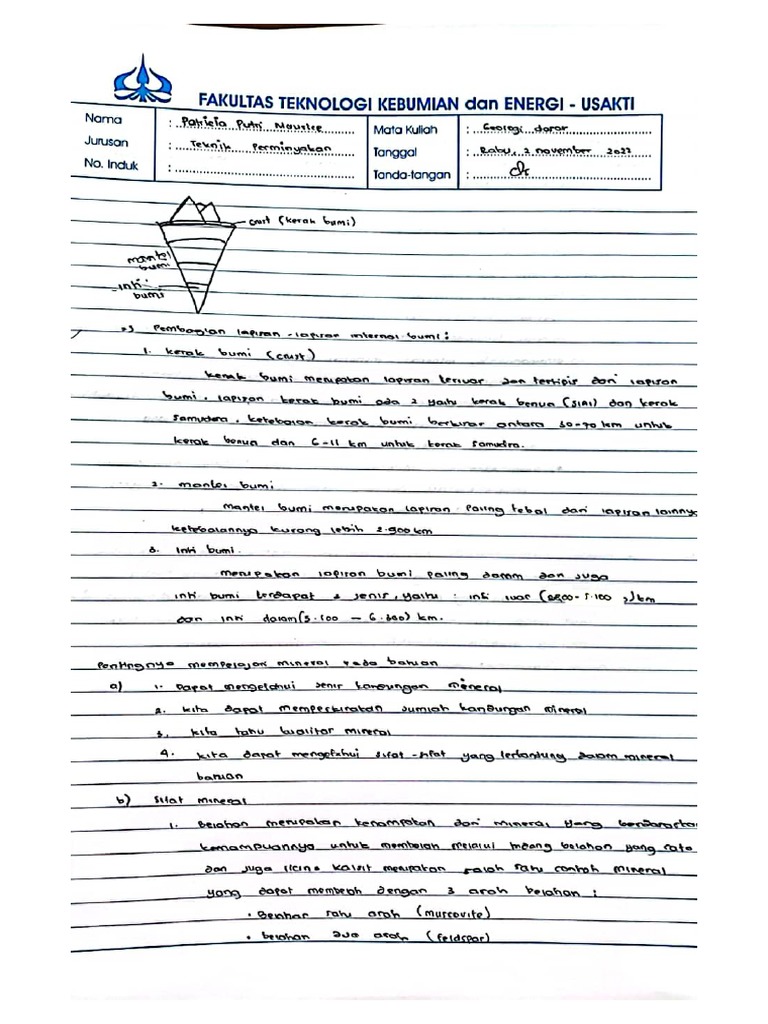 FAKULTAS TEKNOLOGI KEBUMIAN dan ENERGI - USAKTI
Nama : Patricia Putri Maurice
Mata Kuliah : Geologi dasar
Jurusan : Teknik Perminyakan
Tanggal : Rabu, 2 november 2022
No. Induk :
Tanda-tangan :
crust (kerak bumi)
mantel bumi
inti bumi
Pembagian lapisan-lapisan internal bumi :
1. kerak bumi (crust)
kerak bumi merupakan lapisan terluar dan tertipis dari lapisan
bumi, lapisan kerak bumi ada 2 yaitu kerak benua (SIAl) dan kerak
samudra. ketebalan kerak bumi berkisar antara 30-70 km untuk
kerak benua dan 6-11 km untuk kerak samudra.
2. mantel bumi
mantel bumi merupakan lapisan paling tebal dari lapisan lainny
ketebalannya kurang lebih 2.900 km
3. Inti bumi.
merupakan lapisan bumi paling dalam dan juga
inti bumi terdapat 2 jenis, yaitu : inti luar (2900-5.100) km
dan inti dalam (5.100 - 6.300) km.
Pentingnya mempelajari mineral pada batuan
a) 1. Dapat mengetahui jenis kandungan mineral
2. kita dapat memperkirakan jumlah kandungan mineral
3. kita tahu kualitas mineral
4. kita dapat mengetahui sifat-sifat yang terkandung dalam mineral
batuan
b) Sifat mineral
1. Belahan merupakan kenampakan dari mineral yang berdasarka
kemampuannya untuk membelah melalui bidang belahan yang rata
dan juga licin. Kalsit merupakan salah satu contoh mineral
yang dapat membelah dengan 3 arah belahan :
• Belahan satu arah (muscovite)
• belahan dua arah (feldspar)